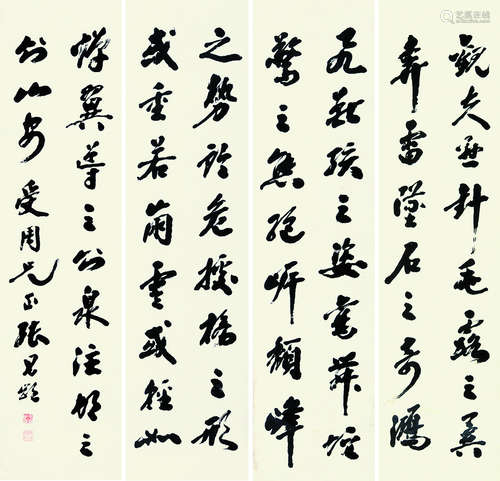 觀夫懸針垂露之異
奔雷墜石之奇鴻
飛獸駭之姿鸞舞蛇
驚之態絕岸頹峰
之勢臨危據槁之形
或重若崩雲或輕如
蟬翼導之則泉注頓之
則山安 受周兄正 張君勱
艺狐在线